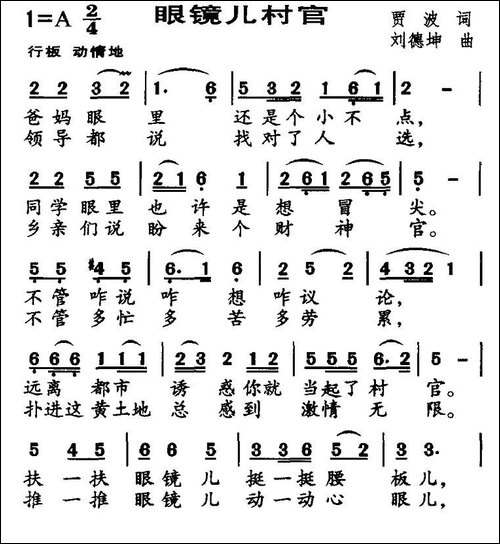 眼镜儿村官
1=A 2/4
贾波 词
刘德坤 曲
行板 动情地
2 2 3 2 | 1· 6 | 5 3 2 1 6 1 | 2 - |
爸妈眼里还是个小不点，
领导都说找对了人选，
2 2 5 5 | 2 1 6 1 | 2 6 1 2 6 5 | 5 - |
同学眼里也许是想冒尖。
乡亲们说盼来个财神官。
5 5 #4 5 | 6· 1 6 | 2 5 2 | 4 3 2 1 |
不管咋说咋想咋议论，
不管多忙多苦多劳累，
6 6 6 1 1 1 | 2 3 2 | 5 5 5 6· 2 | 5 - |
远离都市诱惑你就当起了村官。
扑进这黄土地总感到激情无限。
5 4 5 | 6 6 5 | 2 3 6 5 2 | 3 3· |
扶一扶眼镜儿挺一挺腰板儿，
推一推眼镜儿动一动心眼儿，